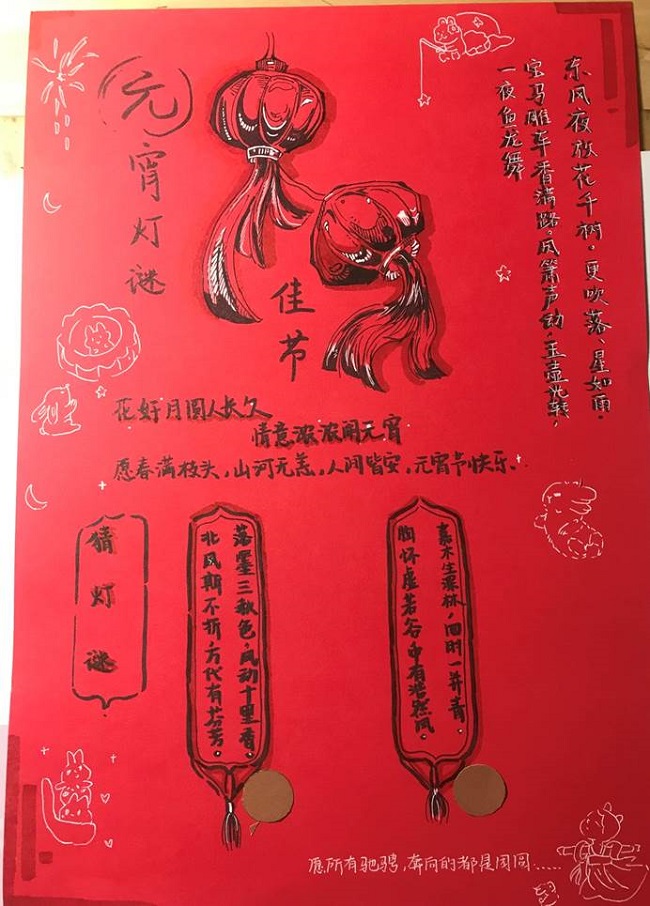 元宵灯谜
佳节
东风夜放花千树。更吹落、星如雨。
宝马雕车香满路。凤箫声动,玉壶光转,
一夜鱼龙舞
花好月圆人长久
情意浓浓闹元宵
愿春满枝头,山河无恙,人间皆安,元宵节快乐.
猜灯谜
落墨三秋色,风动十里香。
北风斯不折,万代有芬芳。
嘉木生深林,四时一并青。
胸怀虚若谷,中有浩然风。
愿所有驰骋,奔向的都是团圆......